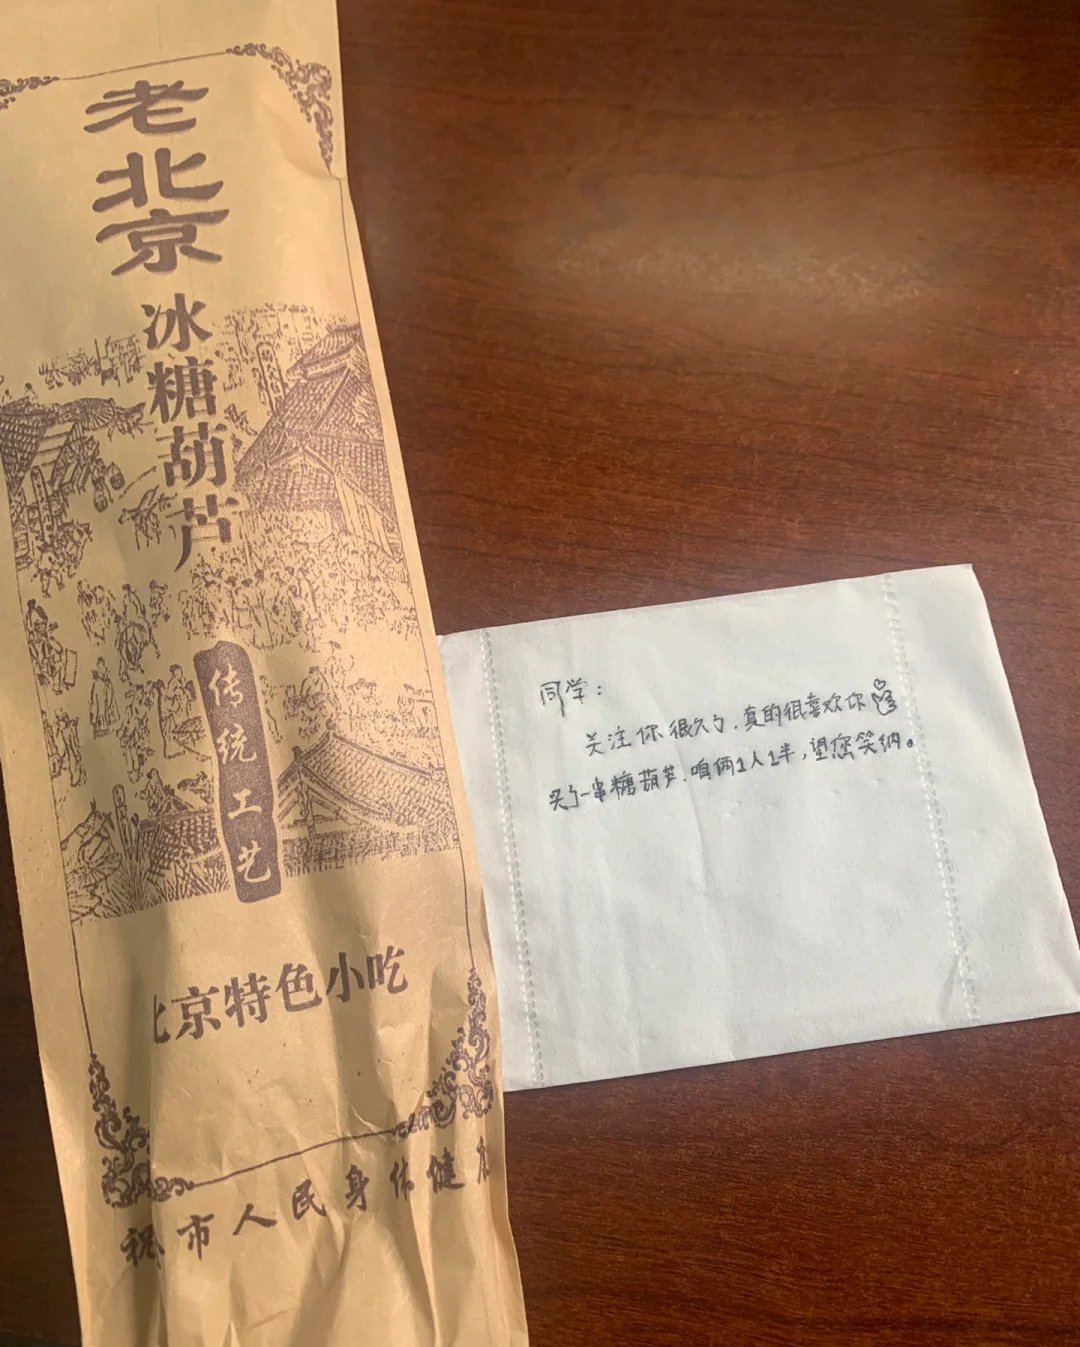 老北京
冰糖葫芦
传统工艺
北京特色小吃
祝市人民身体健康
同学：
关注你很久了，真的很喜欢你
买了一串糖葫芦，咱俩1人1半，望您笑纳。